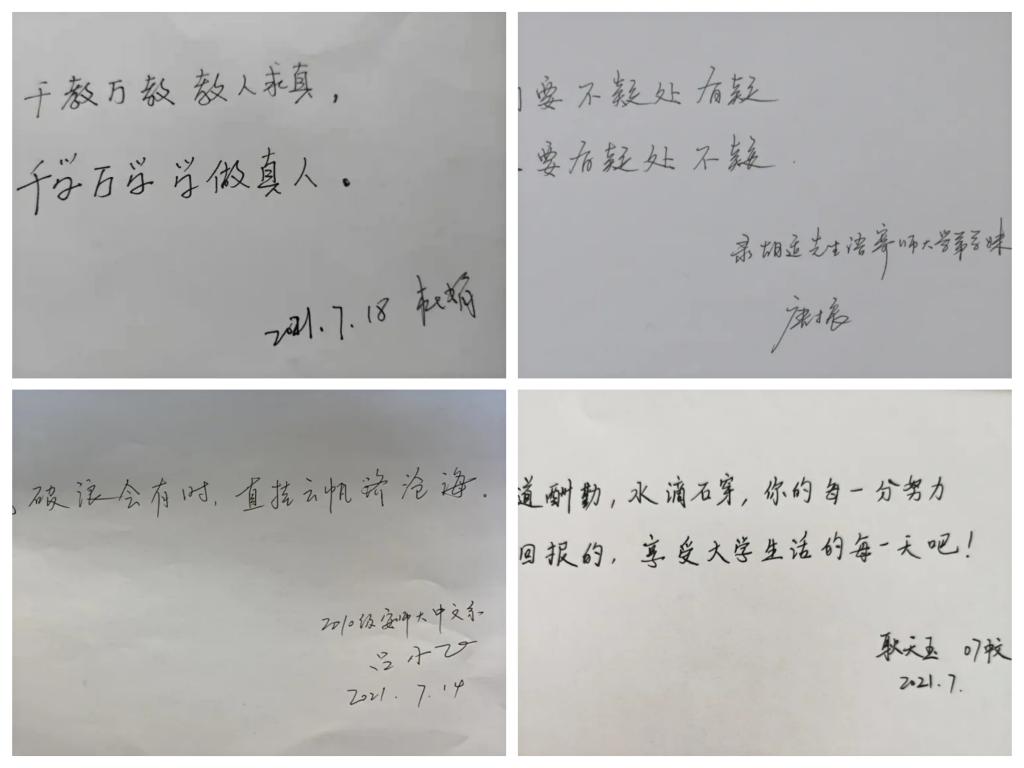 千教万教 教人求真，
千学万学 学做真人。
2021.7.18
要不疑处有疑
要有疑处不疑.
录胡适先生语寄师大学弟学妹
唐振
破浪会有时，直挂云帆济沧海.
2010级安师大中文系
2021.7.14
道酬勤，水滴石穿，你的每一分努力
回报的，享受大学生活的每一天吧！
耿天玉 07中文
2021.7.